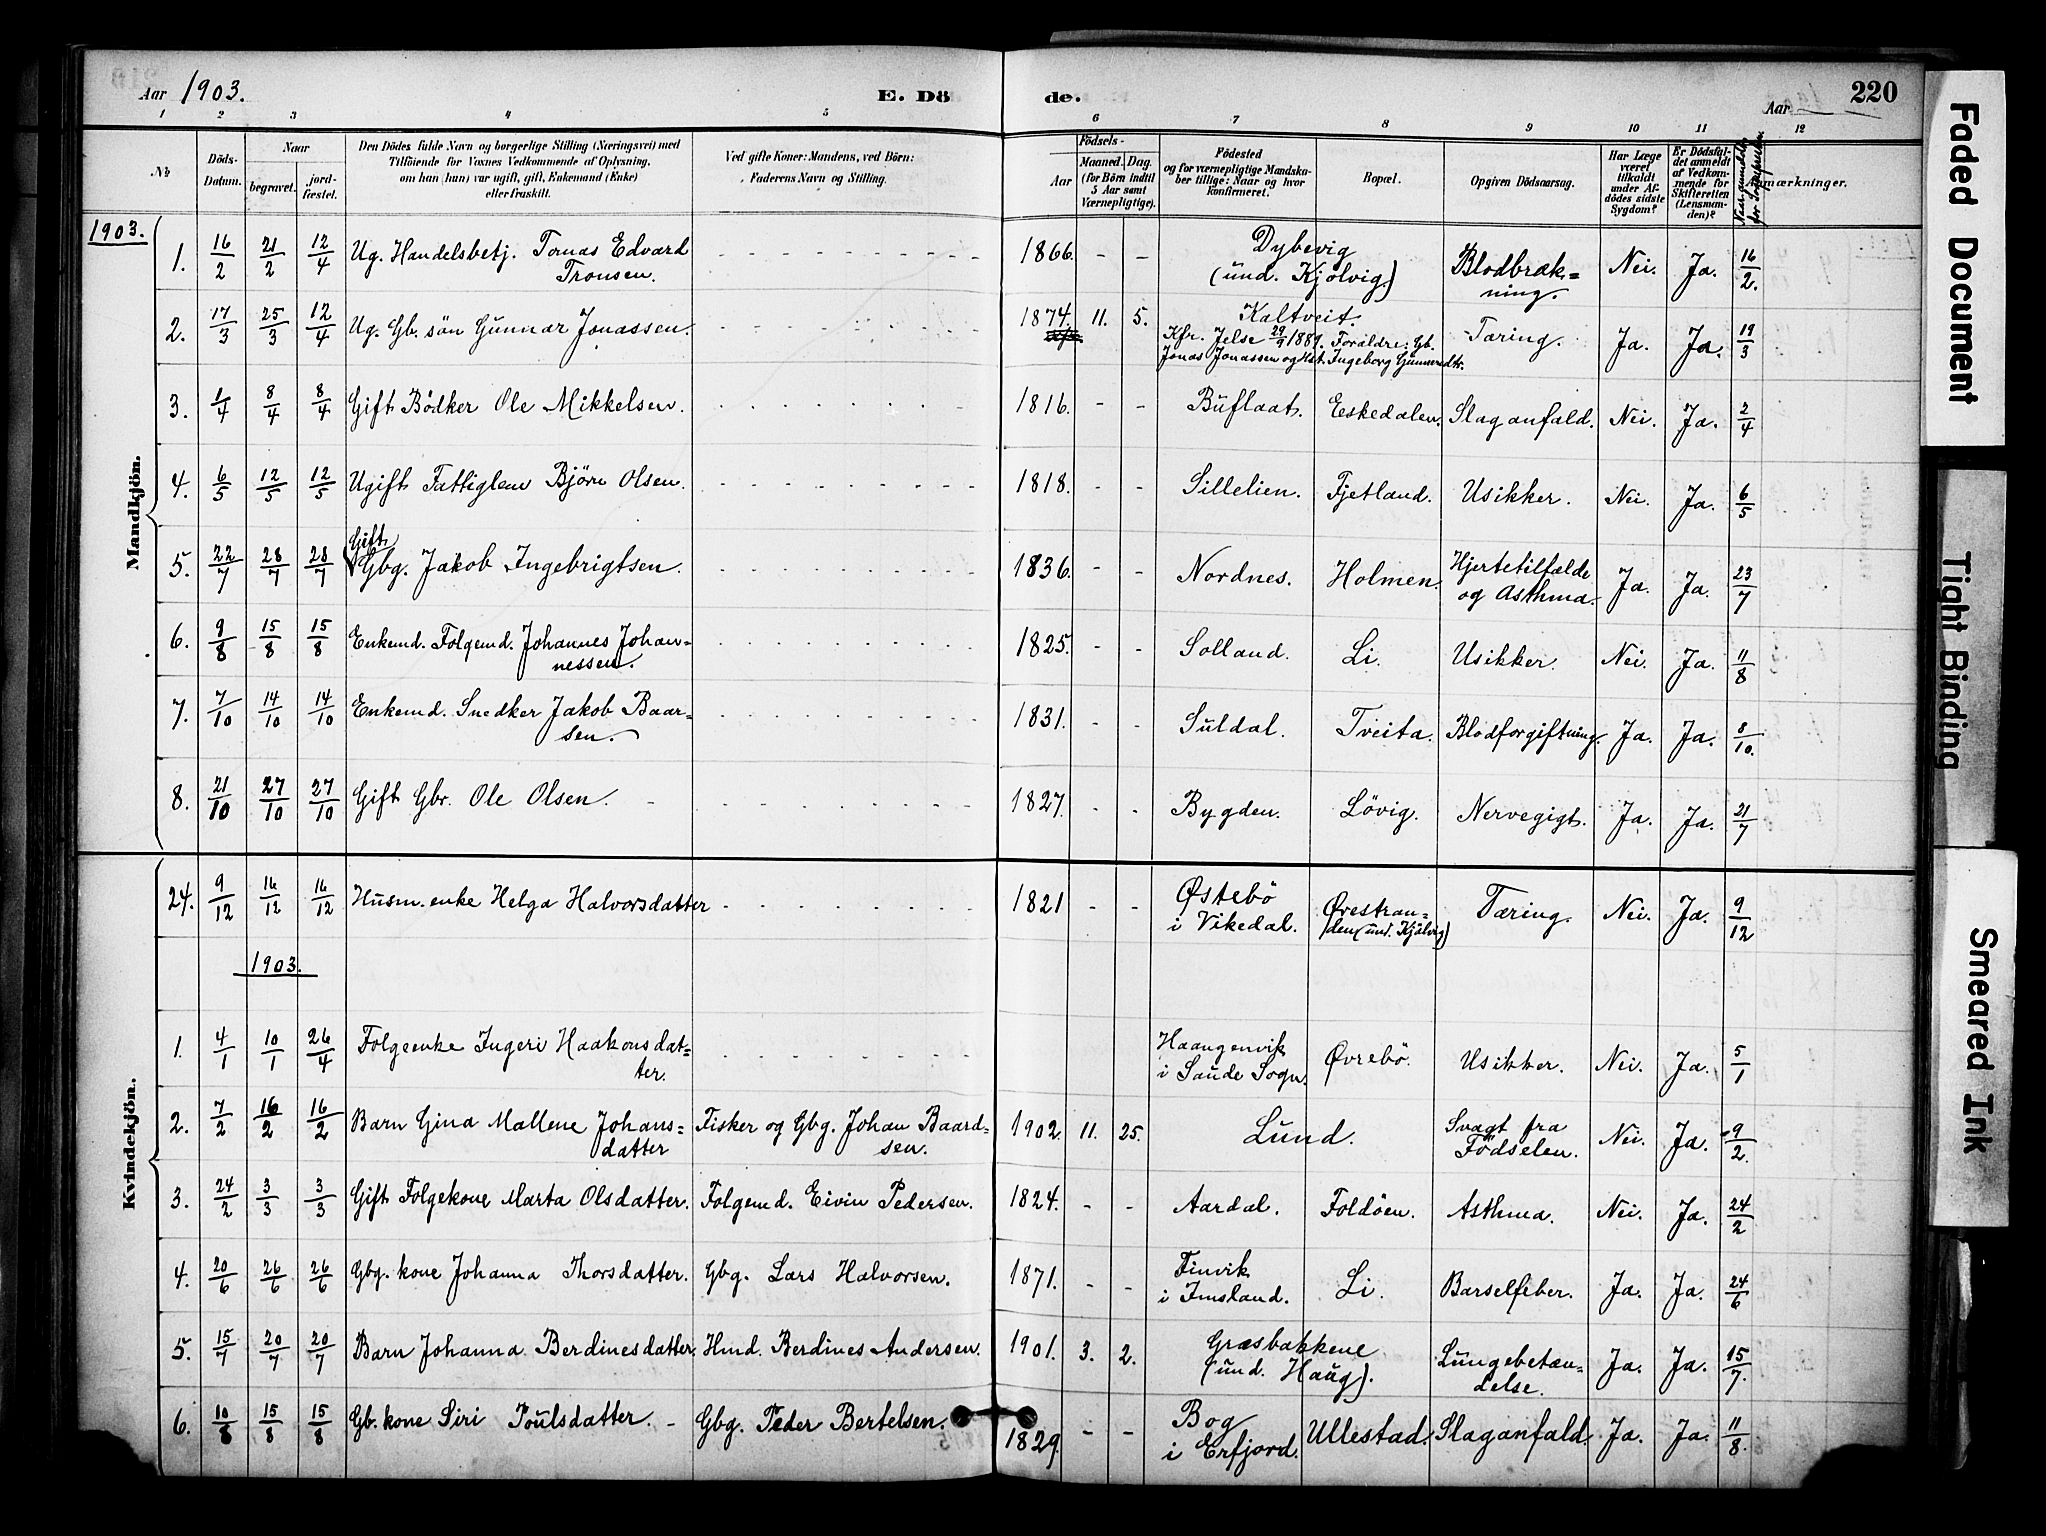 Aar 1903. E. Dö de. Aar 220
1 2 3 4 5 6 7 8 9 10 11 12
№ Döds-Datum. Naar begravet. jord-fæstet. Den Dödes fulde Navn og borgerlige Stilling (Næringsvei) med Tilföiende for Voxnes Vedkommende af Oplysning, om han (hun) var ugift, gift, Enkemand (Enke) eller fraskilt. Ved gifte Koner: Mandens, ved Börn: Faderens Navn og Stilling. Födsels- Aar Maaned. Dag. (for Börn indtil 5 Aar samt Værnepligtige). Födested og for værnepligtige Mandskaber tillige: Naar og hvor konfirmeret. Bopæl. Opgiven Dödsaarsag. Har Læge været tilkaldt under Afdödes sidste Sygdom? Er Dödsfaldet anmeldt af Vedkommende for Skifteretten (Lensmanden)? Anmærkninger.
1903.
Mandkjön.
1. 16/2 21/2 12/4 Ug. Handelsbetj. Tomas Edvard Tronsen. 1866. - - Dybevig (und. Kjølvig) Blodbrækning. Nei. Ja. 16/2.
2. 17/3 25/3 12/4 Ug. Gb. sön Gunnar Jonassen. 1874. 11. 5. Kaltveit. Kfr. Jelse 29/9 1889. Forældre: Gb. Jonas Jonassen og Hst. Ingeborg Gunnersdtr. Tæring. Ja. Ja. 19/3
3. 1/4 8/4 8/4 Gift Bödker Ole Mikkelsen. 1816. - - Buflaat. Eeskedalen. Slaganfald. Nei. Ja. 2/4
4. 6/5 12/5 12/5 Ugift Fattiglem Bjørn Olsen. 1818. - - Sillelien. Fjetland. Usikker. Nei. Ja. 6/5
5. 22/7 28/7 28/7 Gift Gbg. Jakob Ingebrigtsen. 1836. - - Nordnes. Holmen. Hjertetilfælde og Asthma. Ja. Ja. 23/7
6. 9/8 15/8 15/8 Enkemd. Folgemd. Johannes Johannessen. 1825. - - Solland. Li. Usikker. Nei. Ja. 11/8
7. 7/10 14/10 14/10 Enkemd. Snedker Jakob Baarsen. 1831. - - Suldal. Tveita. Blodforgiftning. Ja. Ja. 8/10.
8. 21/10 27/10 27/10 Gift Gbr. Ole Olsen. 1827. - - Bygden. Lövig. Nervegigt. Ja. Ja. 21/7
Kvindekjön.
24. 9/12 16/12 16/12 Husm. enke Helga Halvorsdatter 1821 - - Østebö i Vikedal. Øvestranden (und. Kjölvig) Tæring. Nei. Ja. 9/12
1903.
1. 4/1 10/1 26/4 Folgeenke Ingeri Haakonsdatter. Haangenvik i Saude Sogn. Øvrebö. Usikker. Nei. Ja. 5/1
2. 7/2 16/2 16/2 Barn Gina Mallene Johansdatter Fisker og Gbg. Johan Baardsen. 1902. 11. 25. Lund. Svagt fra Födselen. Nei. Ja. 9/2.
3. 24/2 3/3 3/3 Gift Folgekone Marta Olsdatter. Folgemd. Eivin Pedersen. 1824. - - Aardal. Foldöen. Asthma. Nei. Ja. 24/2
4. 20/6 26/6 26/6 Gbg. kone Johanna Thorsdatter. Gbg. Lars Halvorsen. 1871. - - Finvik i Imsland. Li. Barselfeber. Ja. Ja. 24/6
5. 15/7 20/7 20/7 Barn Johanna Berdinesdatter. Hmd. Berdines Andersen. 1901. 3. 2. Græsbakkene (und. Haug). Lungebetændelse. Ja. Ja. 15/7.
6. 10/8 15/8 15/8 Gb. kone Siri Poulsdatter. Gbg. Peder Bertelsen. 1829. - - Bog i Erfjord. Ullestad. Slaganfald. Ja. Ja. 11/8.
Faded Document
Tight Binding
Smeared Ink